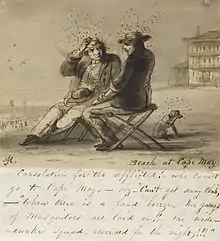 Beach at Cape May.
Consolation for the afflicted who cannot
go to Cape May, — or, "Can't get away Club,
— When there is a land breeze, the
of Musquitoes are laid on!! the under-
Squad, reserved for the night!!!"